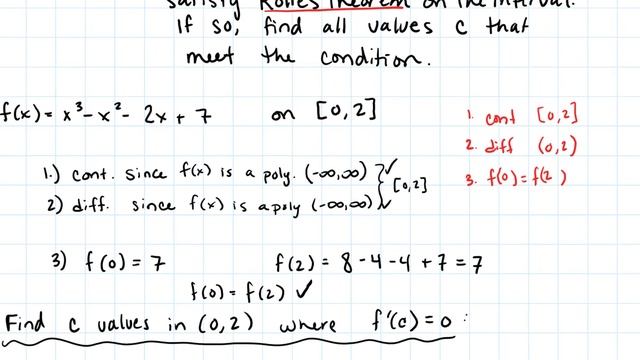 satisfy Rolle's Theorem on the interval.
If so, find all values c that
meet the condition.
f(x) = x³ - x² - 2x + 7 on [0,2]
1. cont [0,2]
2. diff (0,2)
3. f(0) = f(2)
1.) cont. since f(x) is a poly. (-∞,∞) ✓
2) diff. since f(x) is a poly (-∞,∞) ✓
[0,2]
3) f(0) = 7 f(2) = 8 - 4 - 4 + 7 = 7
f(0) = f(2) ✓
Find c values in (0,2) where f'(c) = 0 :